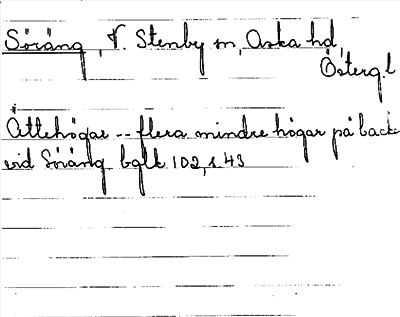 Söräng, V. Stenby sn, Aska hd,
Österg.l
Ättehögar -- flera mindre högar på backe
vid Söräng bglk 102, s. 43